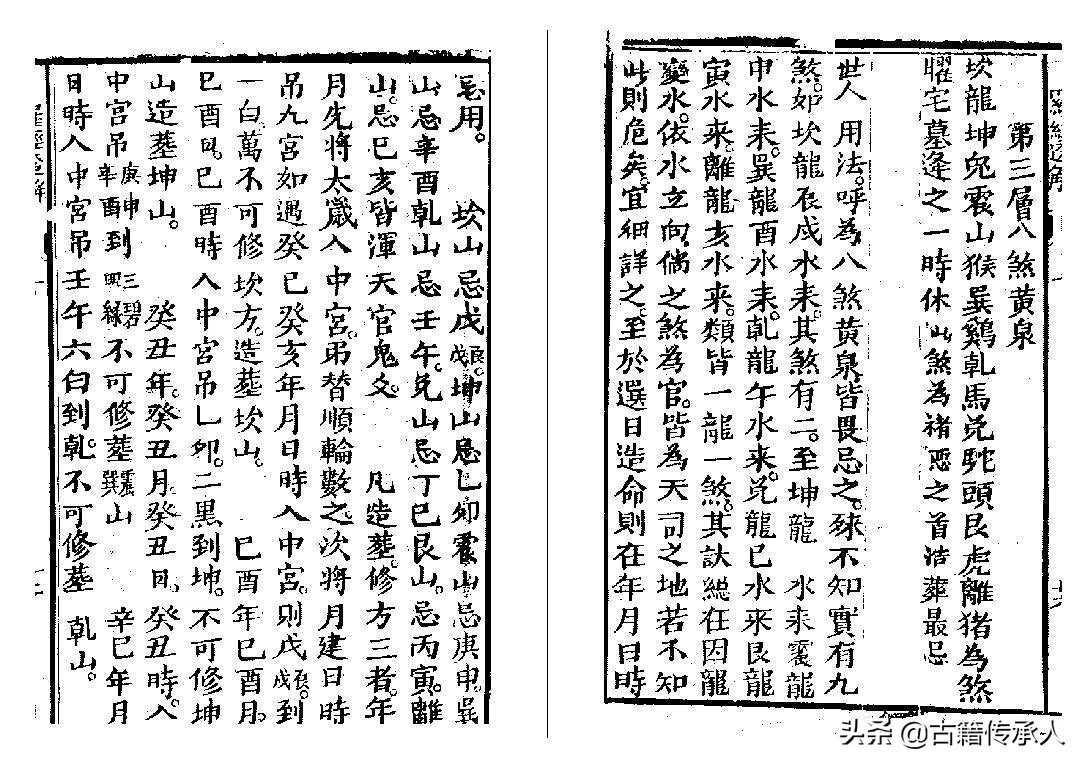 第三層八煞黃泉
坎龍坤兔震山猴巽鷄乹馬兌蛇頭艮虎離猪為煞
曜宅墓逢之一時休此煞為褚恶之首洁葬最忌
世人用法。呼為八煞黃泉。皆畏忌之。殊不知實有九
煞。如坎龍辰戌水来。其煞有二。至坤龍 水来震龍
申水来。巽龍酉水来。乹龍午水来。兌龍巳水来艮龍
寅水来離龍亥水来。類皆一龍一煞。其訣總在因龍
變水。依水立向。倘之煞為官。皆為天司之地若不知
此則危矣。宜細詳之。至於選日造命則在年月日時
忌用。 坎山忌戊辰戊戌坤山忌乙卯震山忌庚申。巽
山忌辛酉乹山忌壬午。兌山忌丁巳艮山。忌丙寅。離
山。忌巳亥皆渾天官鬼爻。 凡造葬。修方三者。年
月先將太歲入中宮。弔替順輪數之。次將月建日時
吊九宮如遇癸巳癸亥年月日時入中宮。則戊辰戊戌到
一白萬不可修坎方。造葬坎山。 巳酉年巳酉月。
巳酉日。巳酉時入中宮吊乙卯。二黑到坤。不可修坤
山造葬坤山。 癸丑年。癸丑月。癸丑日。癸丑時。入
中宮吊庚申辛酉到三碧四綠不可修葬震巽山 辛巳年月
日時入中宮吊壬午六白到乹。不可修葬 乹山。
头条 @古籍传承人